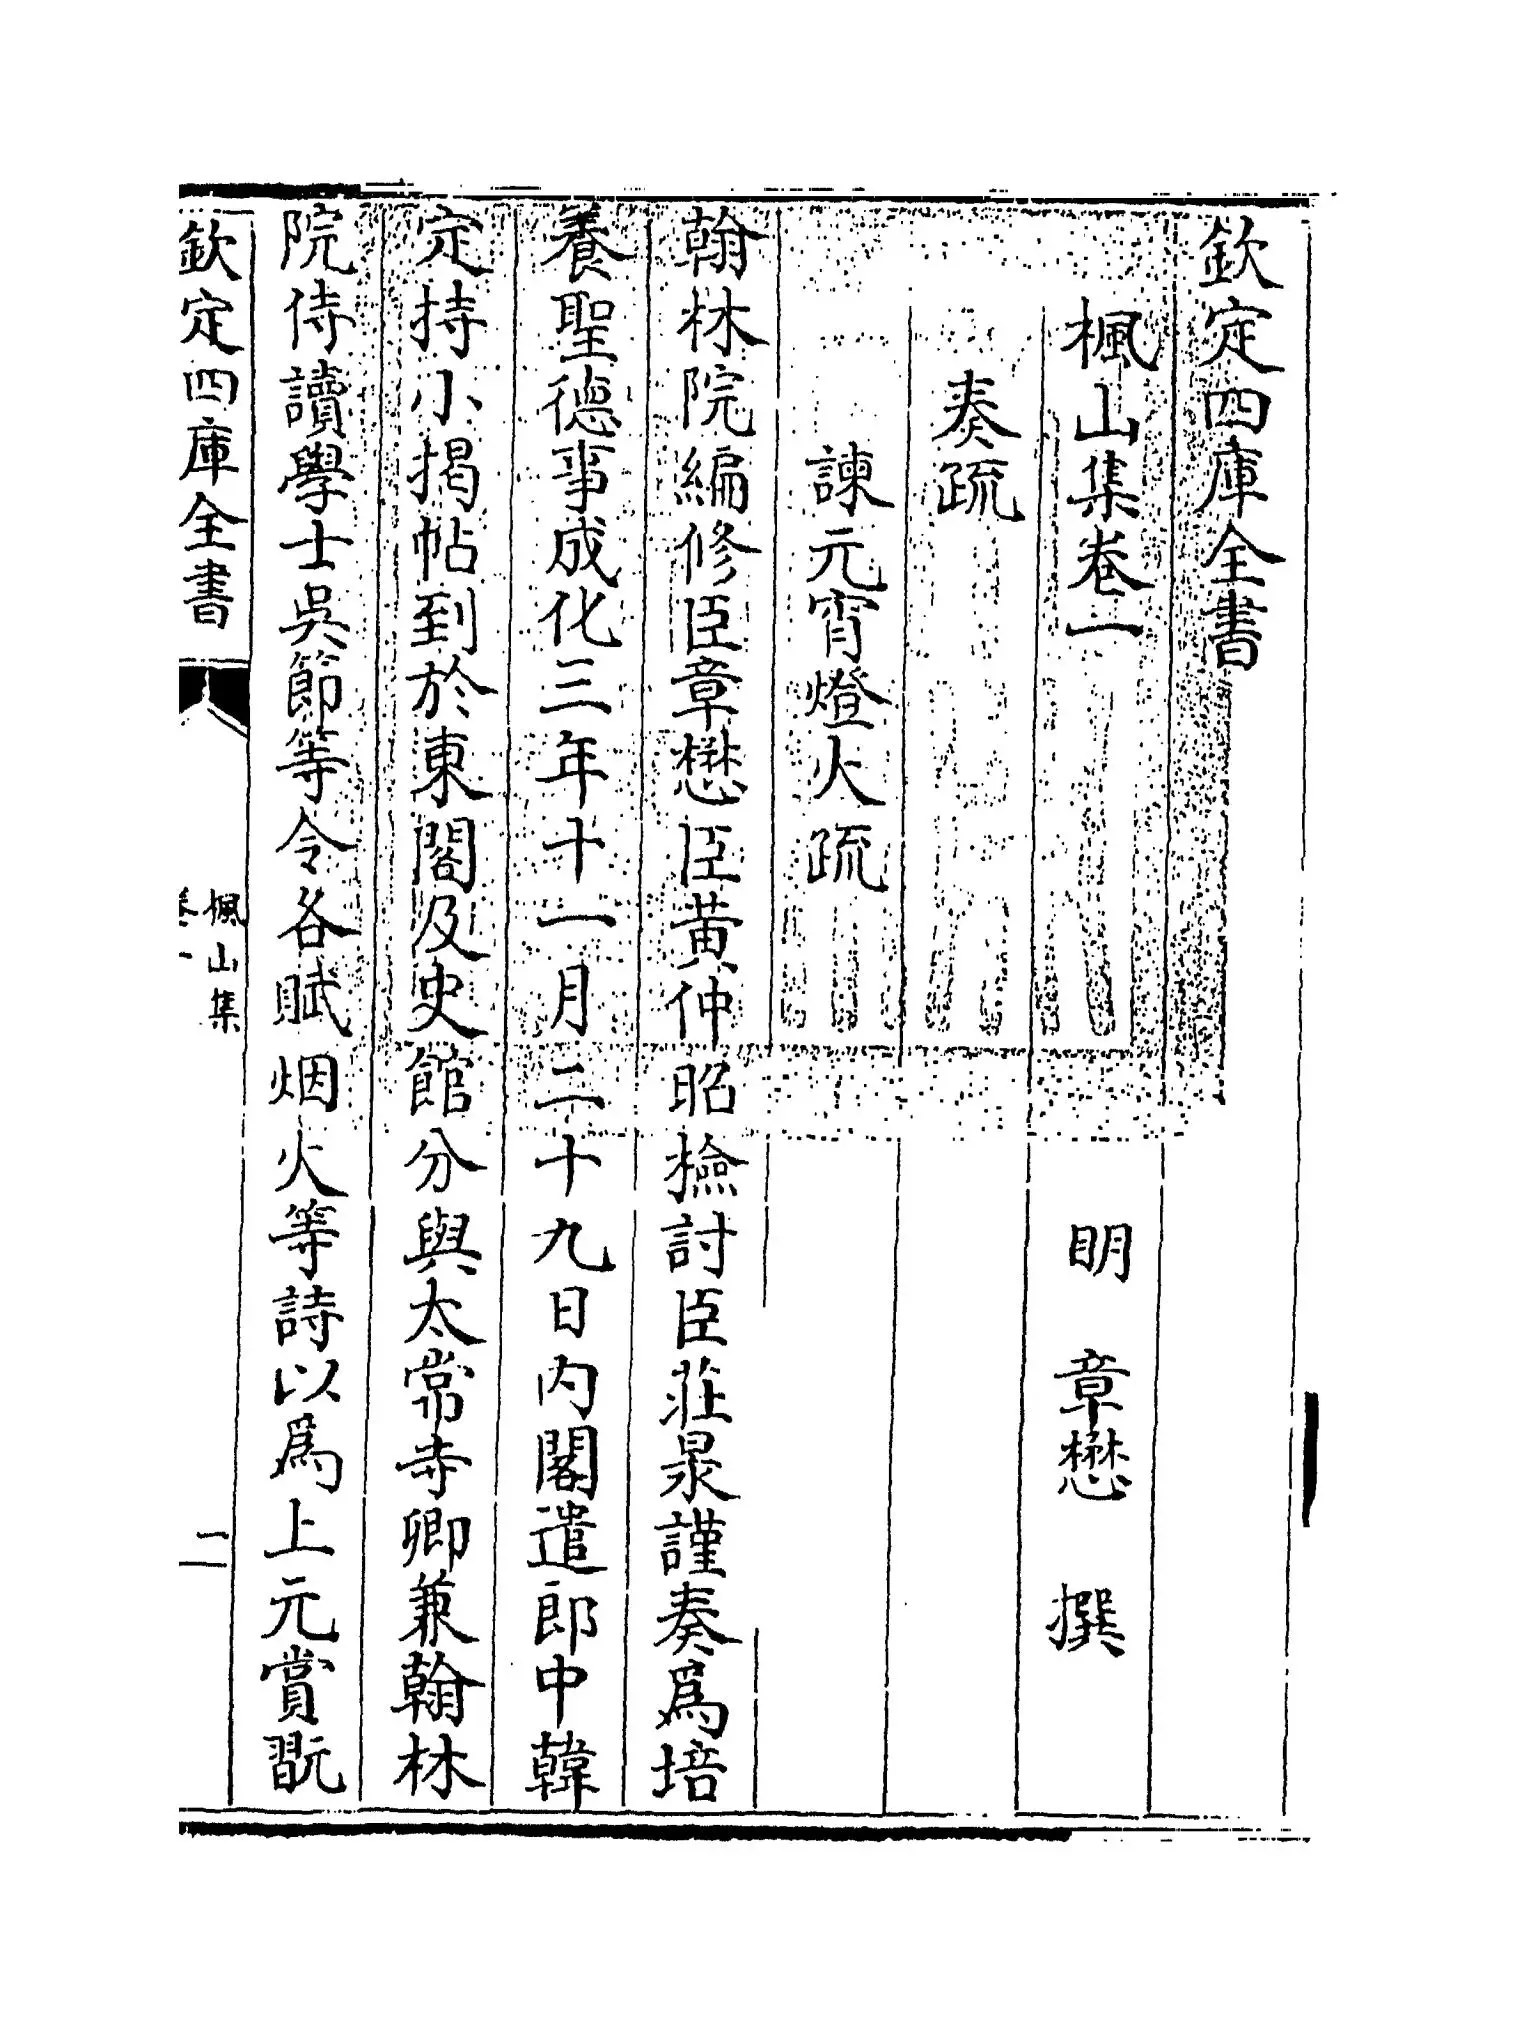 欽定四庫全書
楓山集卷一
明 章懋 撰
奏疏
諫元宵燈火疏
翰林院編修臣章懋臣黃仲昭檢討臣莊㫤謹奏為培
養聖德事成化三年十一月二十九日內閣遣郎中韓
定持小揭帖到於東閣及史館分與太常寺卿兼翰林
院侍讀學士吳節等令各賦烟火等詩以為上元賞翫
欽定四庫全書
楓山集
卷一
一